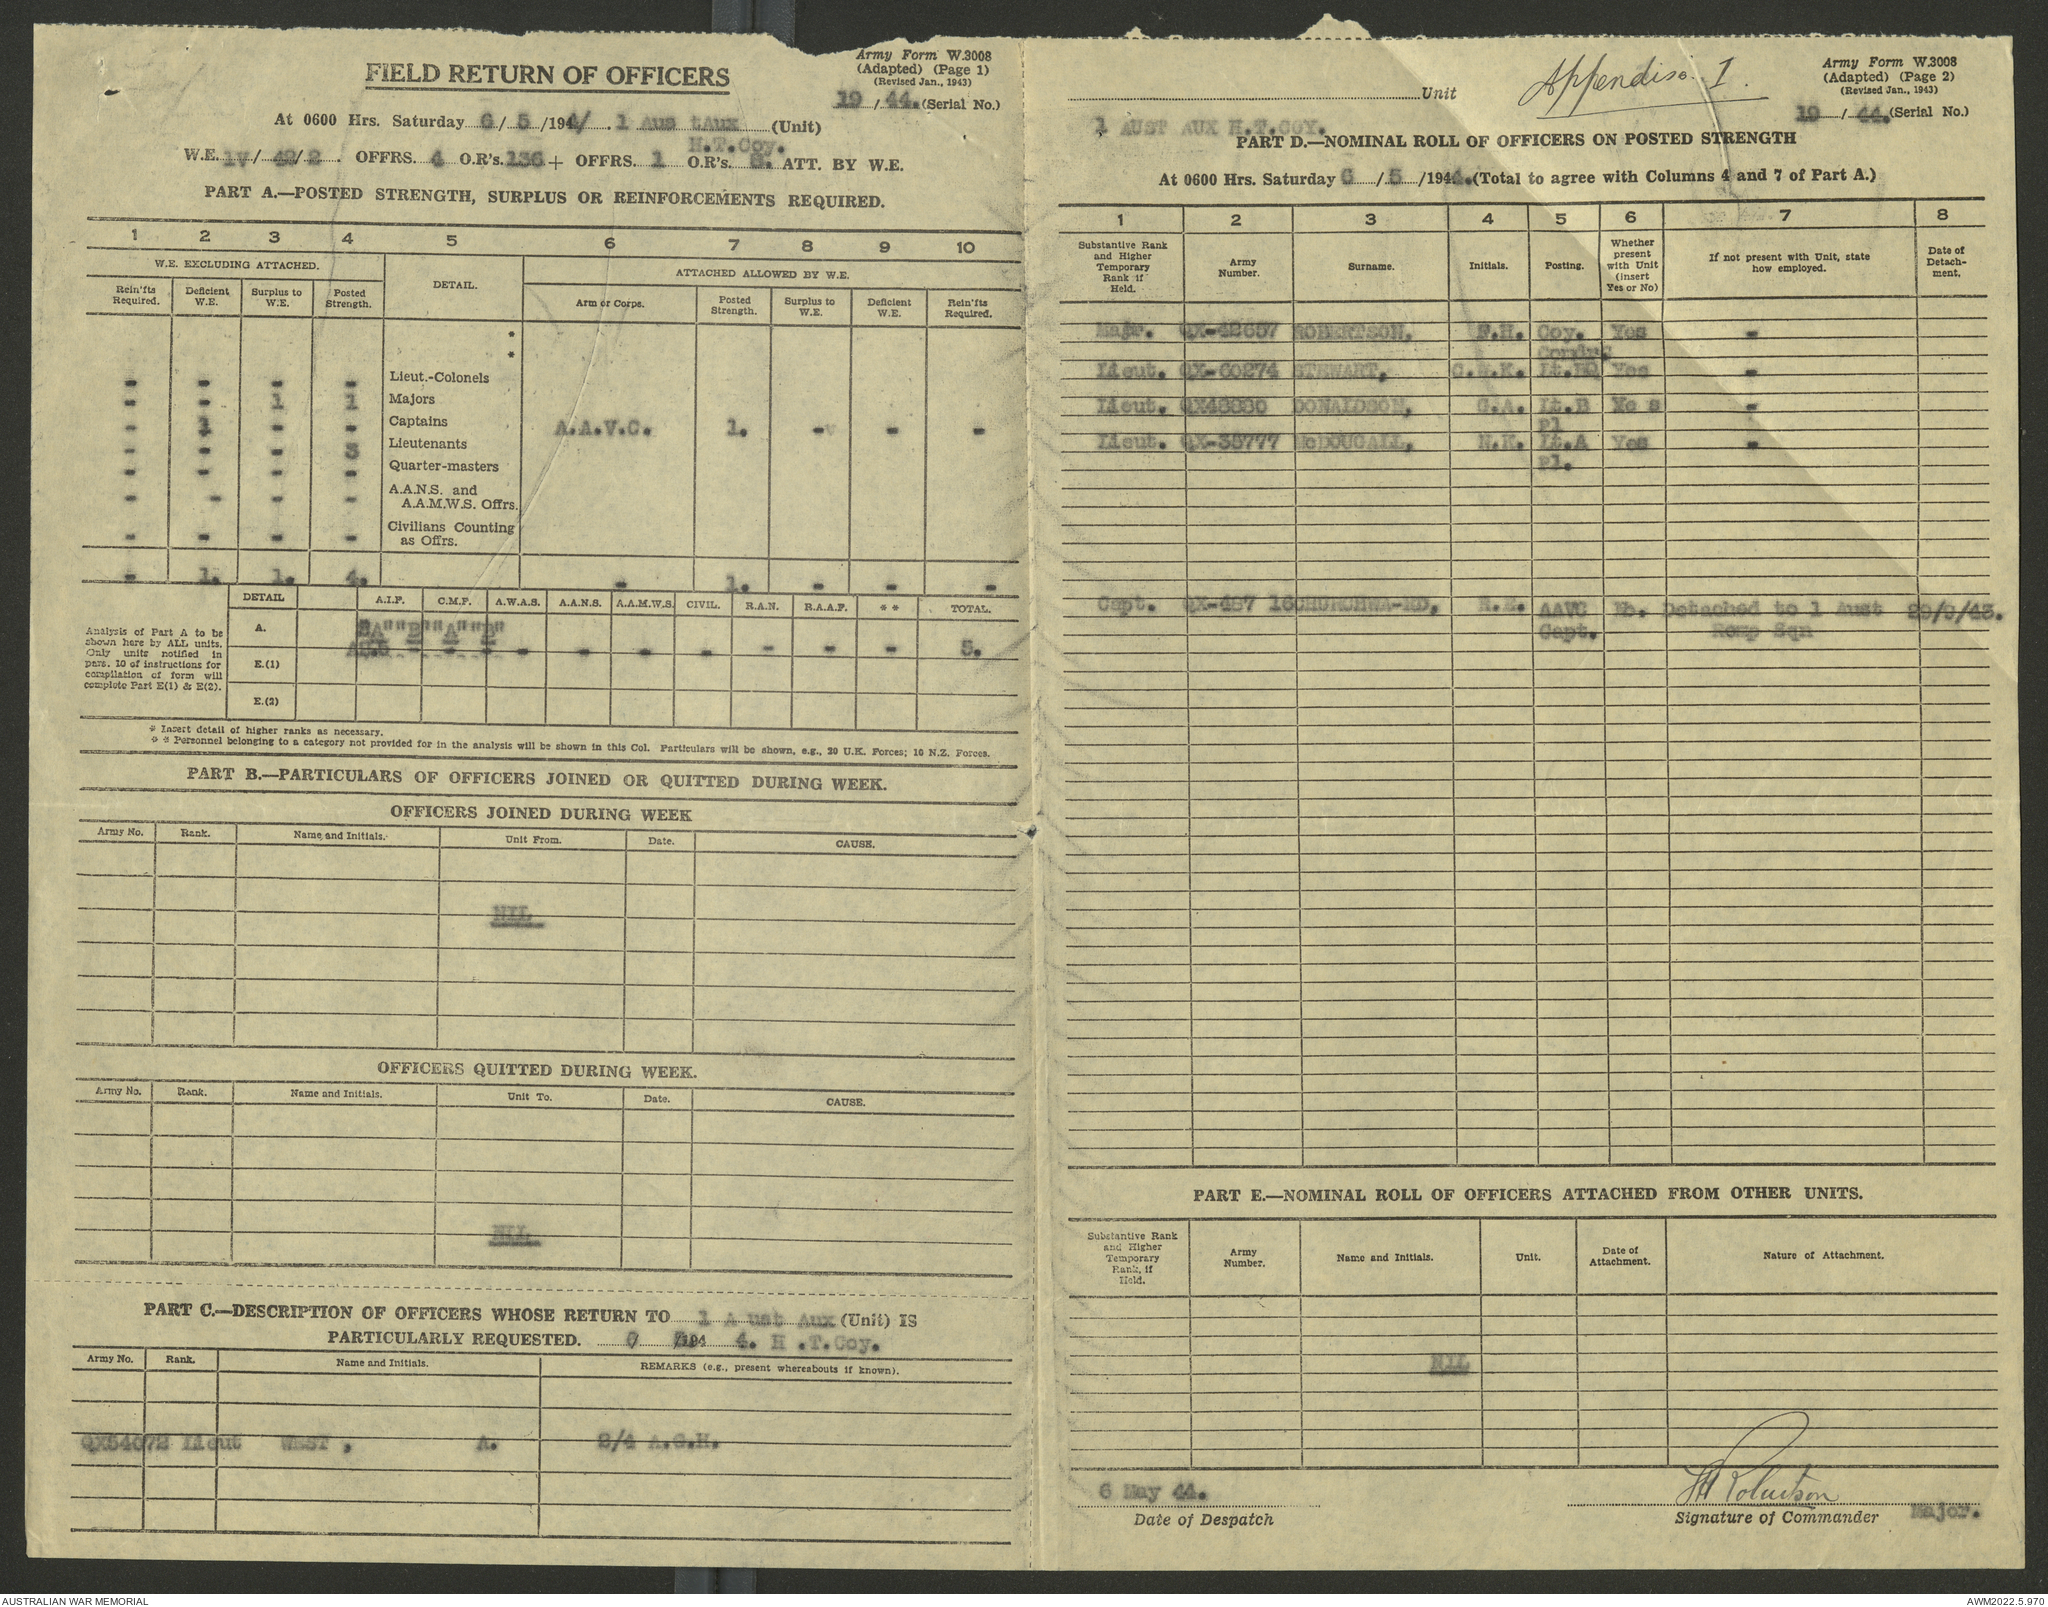 FIELD RETURN OF OFFICERS
Army Form W.3008
(Adapted) (Page 1)
(Revised Jan., 1943)
19 / 44. (Serial No.)
At 0600 Hrs. Saturday 6 / 5 /1944/ 1 Aus tAux (Unit)
H.T.Coy.
W.E. iv / 42 / 2 . OFFRS. 4 O.R's. 136 + OFFRS. 1 O.R's. ATT. BY W.E.
PART A.—POSTED STRENGTH, SURPLUS OR REINFORCEMENTS REQUIRED.
1 2 3 4 5 6 7 8 9 10
W.E. EXCLUDING ATTACHED. DETAIL. ATTACHED ALLOWED BY W.E.
Rein'fts Required. Deficient W.E. Surplus to W.E. Posted Strength. Arm or Corps. Posted Strength. Surplus to W.E. Deficient W.E. Rein'fts Required.
*
*
- - - - Lieut.-Colonels
- - 1 1 Majors
- 1 - - Captains A.A.V.C. 1. - - -
- - - 3 Lieutenants
- - - - Quarter-masters
- - - - A.A.N.S. and
A.A.M.W.S. Offrs.
- - - - Civilians Counting
as Offrs.
- 1. 1. 4. - 1. - - -
DETAIL A.I.F. C.M.F. A.W.A.S. A.A.N.S. A.A.M.W.S. CIVIL. R.A.N. R.A.A.F. * * TOTAL.
Analysis of Part A to be
shown here by ALL units.
Only units notified in
para. 10 of instructions for
compilation of form will
complete Part E(1) & E(2).
A. "A" "B" "A" "B"
- - - - - - - - - - 5.
E.(1)
E.(2)
* Insert detail of higher ranks as necessary.
* * Personnel belonging to a category not provided for in the analysis will be shown in this Col. Particulars will be shown, e.g., 20 U.K. Forces; 10 N.Z. Forces.
PART B.—PARTICULARS OF OFFICERS JOINED OR QUITTED DURING WEEK.
OFFICERS JOINED DURING WEEK
Army No. Rank. Name and Initials. Unit From. Date. CAUSE.
NIL
OFFICERS QUITTED DURING WEEK.
Army No. Rank. Name and Initials. Unit To. Date. CAUSE.
NIL
PART C.—DESCRIPTION OF OFFICERS WHOSE RETURN TO 1 A ust Aux (Unit) IS
PARTICULARLY REQUESTED. /194 4. H .T.Coy.
Army No. Rank. Name and Initials. REMARKS (e.g., present whereabouts if known).
QX54072 Lieut WEST , A. 2/4 A.G.H.
Unit
Appendise I.
Army Form W.3008
(Adapted) (Page 2)
(Revised Jan., 1943)
19 / 44. (Serial No.)
1 AUST AUX H.T.COY.
PART D.—NOMINAL ROLL OF OFFICERS ON POSTED STRENGTH
At 0600 Hrs. Saturday 6 / 5 /1944. (Total to agree with Columns 4 and 7 of Part A.)
1 2 3 4 5 6 7 8
Substantive Rank and Higher Temporary Rank if Held. Army Number. Surname. Initials. Posting. Whether present with Unit (insert Yes or No) If not present with Unit, state how employed. Date of Detach-ment.
Majr. QX-42657 ROBERTSON, F.H. Coy. Yes -
Comdr
Lieut. QX-60274 STEWART, Lt.HQ Yes -
Lieut. DONALDSON, G.A. Lt.B Ye s -
pl
Lieut. QX-35777 McDOUGALL, N.K. Lt.A Yes -
pl.
Capt. QX-487 16 CHURCHWA-RD, AAVC No. Detached to 1 Aust 29/9/43.
Capt. Remp Sqn
PART E.—NOMINAL ROLL OF OFFICERS ATTACHED FROM OTHER UNITS.
Substantive Rank and Higher Temporary Rank, if Held. Army Number. Name and Initials. Unit. Date of Attachment. Nature of Attachment.
NIL
6 May 44.
Date of Despatch
FH Robertson
Signature of Commander Major.
AUSTRALIAN WAR MEMORIAL
AWM2022.5.970